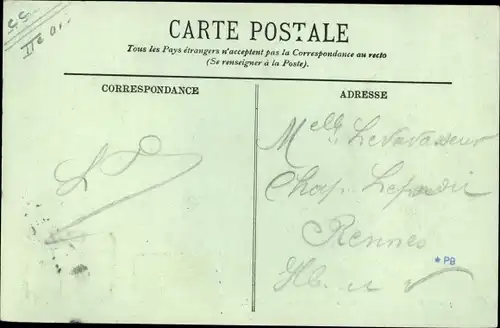 CARTE POSTALE
Tous les Pays étrangers n'acceptent pas la Correspondance au recto
(Se renseigner à la Poste).
CORRESPONDANCE
ADRESSE
Melle Levavasseur
Rennes
* PB